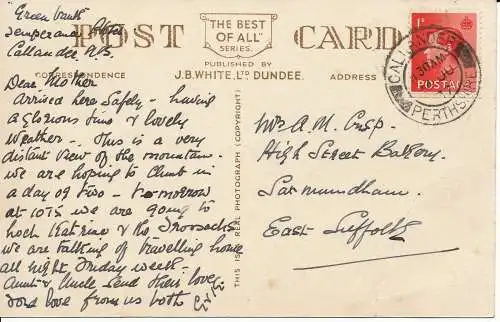 Green bank
Temperance Hotel
Callander N.B.
POST CARD
THE BEST
OF ALL
SERIES.
PUBLISHED BY
J.B. WHITE, LTD DUNDEE.
CORRESPONDENCE
ADDRESS
THIS IS A REAL PHOTOGRAPH (COPYRIGHT)
1D
POSTAGE
CALLANDER
PERTHSHIRE
Dear Mother
Arrived here safely – having
a glorious time & lovely
weather – This is a very
distant view of the mountain
we are hoping to climb in
a day or two – tomorrow
at 10.15 we are going to
Loch Katrine & the Trossachs
we are talking of travelling home
all night, Friday week –
Aunt & Uncle send their love
Fond love from us both
Mrs A. M. Crisp.
High Street Battery.
Saxmundham.
East Suffolk